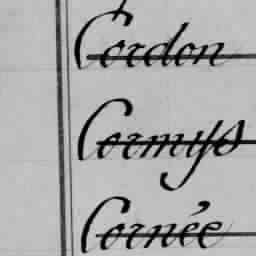 Cordon
Cormis
Cornée